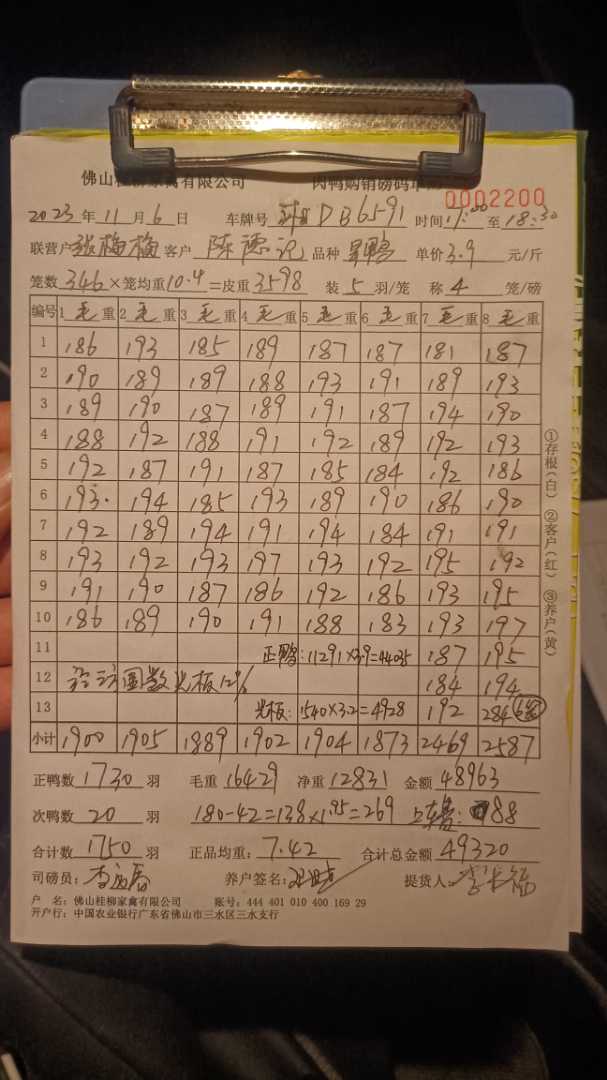 佛山桂柳家禽有限公司 肉鸭购销磅码单
0002200
2023年11月6日 车牌号 DB6591 时间17:00至18:30
联营户张梅梅 客户 陈德记 品种 鸭 单价3.9 元/斤
笼数 346×笼均重10.4=皮重3598 装 5 羽/笼 称 4 笼/磅
编号 1毛重 2毛重 3毛重 4毛重 5毛重 6毛重 7毛重 8毛重
1 186 193 185 189 187 187 181 187
2 190 189 189 188 193 191 189 193
3 189 190 187 189 191 187 194 190
4 188 192 188 191 192 189 192 193
5 192 187 191 187 185 184 192 186
6 193 194 185 193 189 190 186 190
7 192 189 194 191 194 184 191 191
8 193 192 193 197 193 192 195 192
9 191 190 187 186 192 186 193 195
10 186 189 190 191 188 183 193 197
11 正鸭:11291×3.9=44035 187 195
12 圆数光板12% 184 194
13 光板:1540×3.2=4928 192 284 6笼
小计 1900 1905 1889 1902 1904 1873 2469 2587
正鸭数 1730 羽 毛重 16429 净重 12831 金额 48963
次鸭数 20 羽 180-42=138×1.95=269 88
合计数 1750 羽 正品均重: 7.42 合计总金额 49320
司磅员: 养户签名: 提货人:
户 名: 佛山桂柳家禽有限公司 账号: 444 401 010 400 169 29
开户行: 中国农业银行广东省佛山市三水区三水支行
①存根(白) ②客户(红) ③养户(黄)